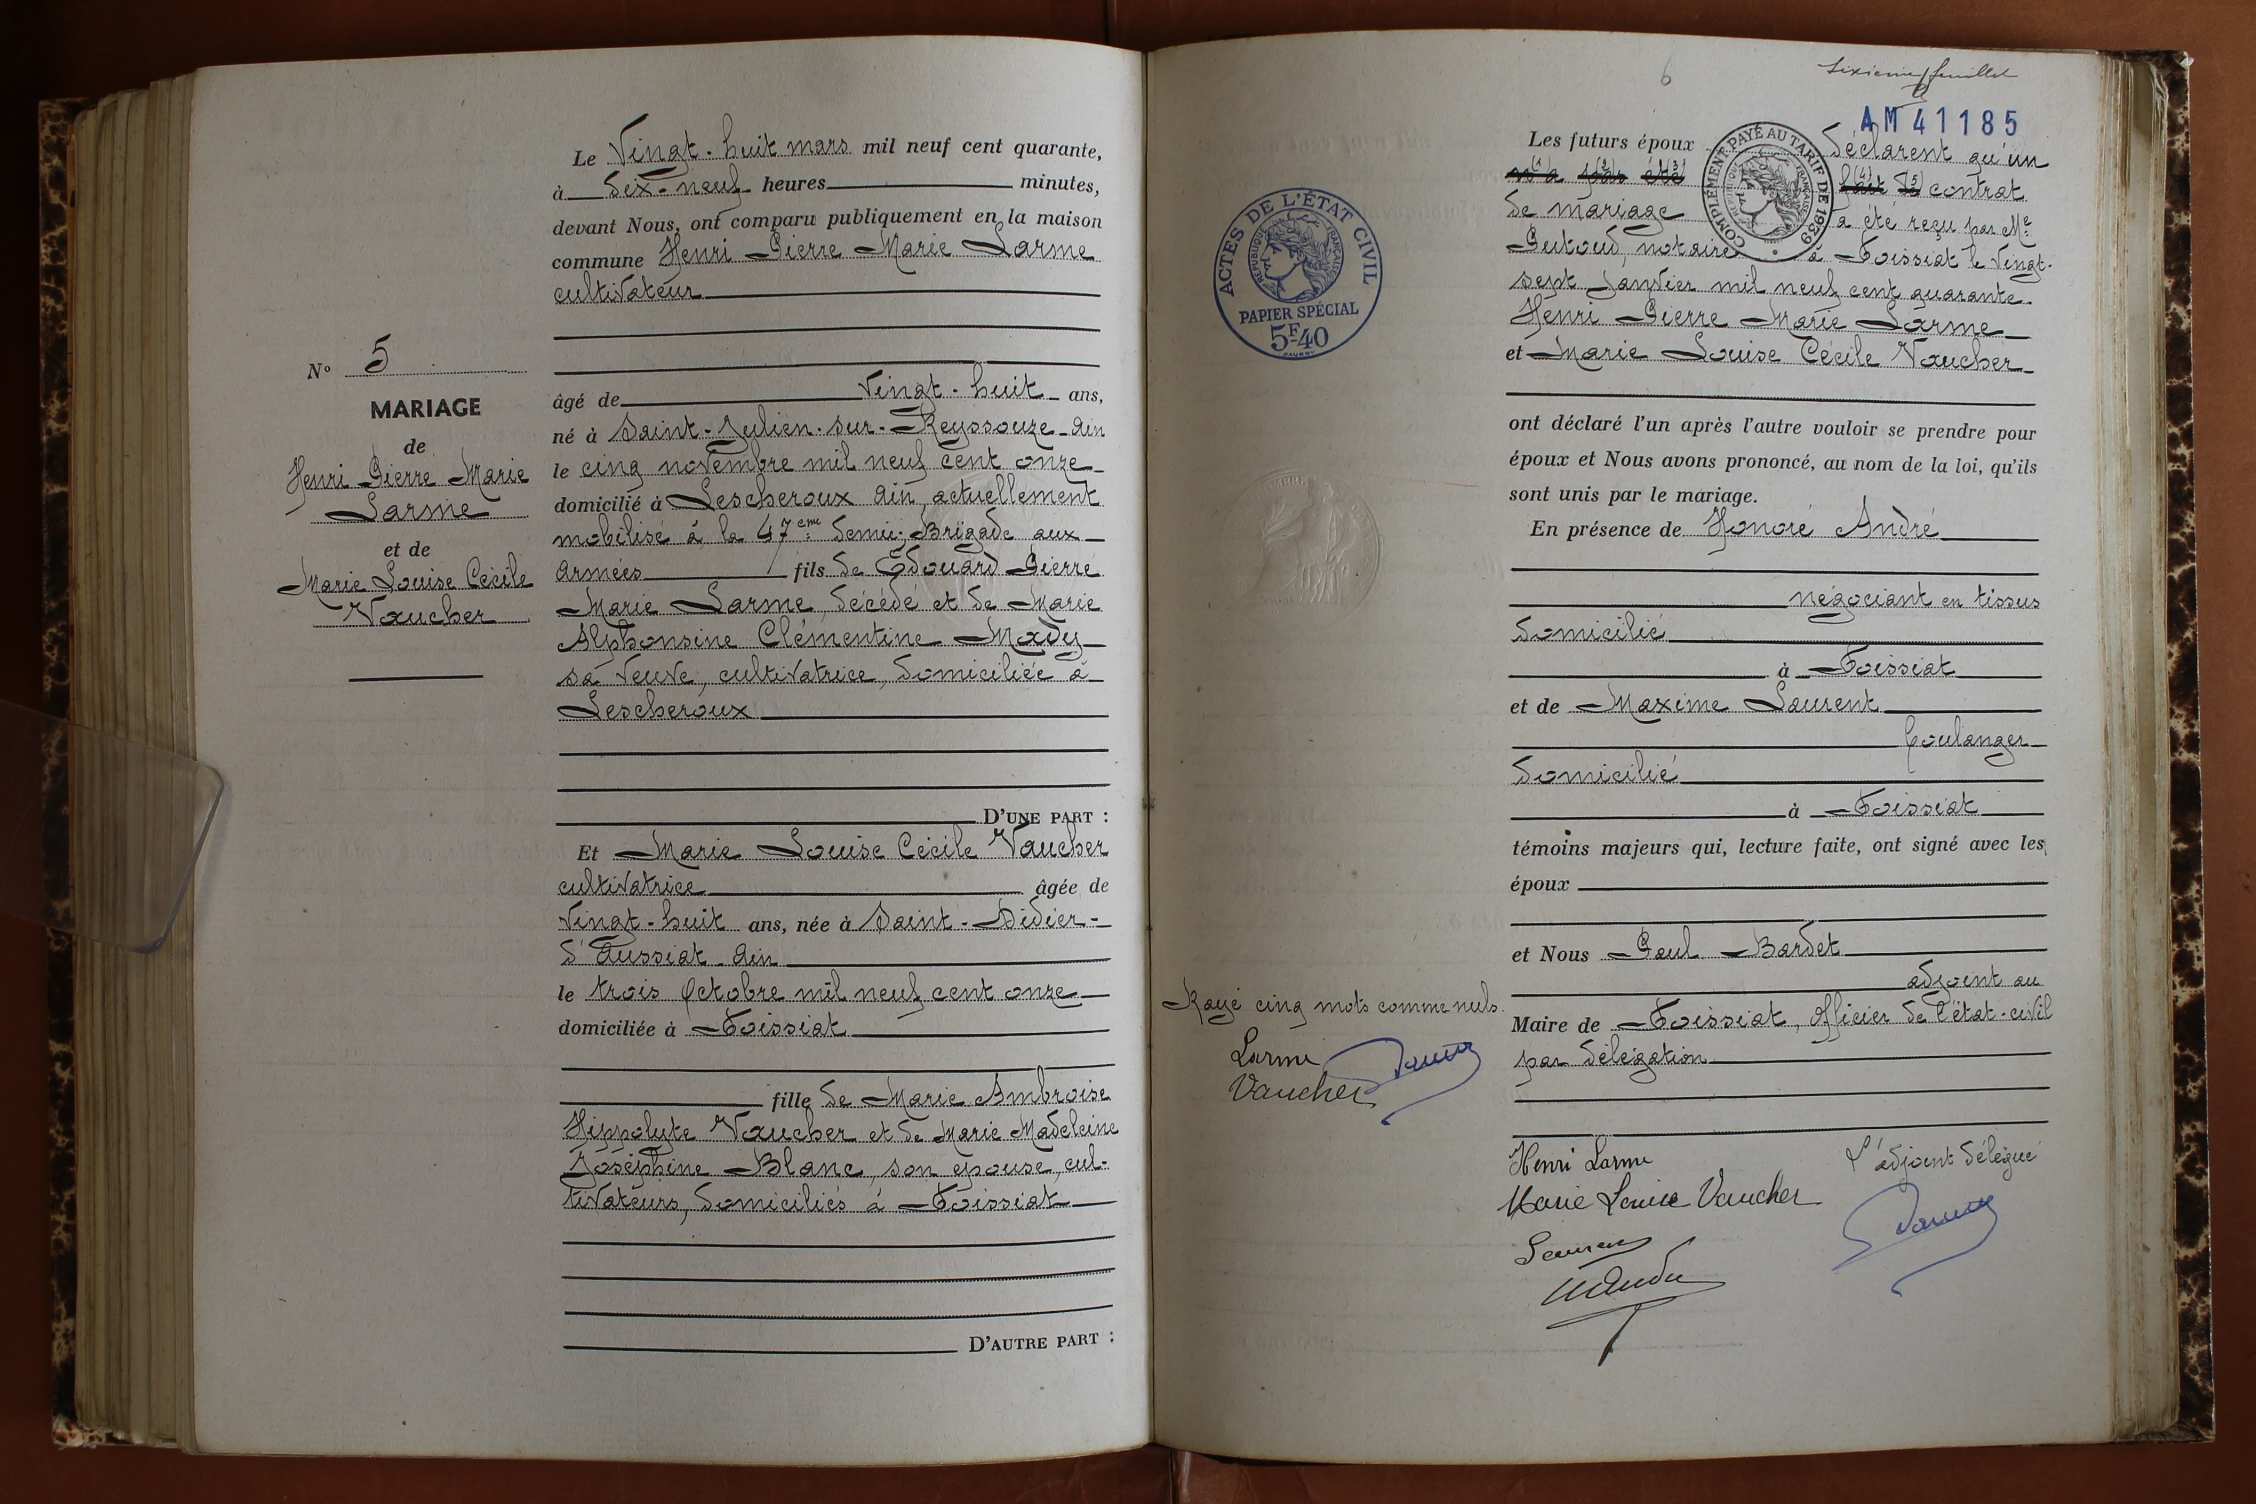 Le Vingt-huit mars mil neuf cent quarante,
à dix-neuf heures minutes,
devant Nous, ont comparu publiquement en la maison
commune Henri Pierre Marie Larme
cultivateur
N° 5
MARIAGE
de
Henri Pierre Marie
Larme
et de
Marie Louise Cécile
Vaucher
âgé de Vingt-huit ans,
né à Saint-Julien-sur-Reyssouze Ain
le cinq novembre mil neuf cent onze
domicilié à Lescheroux Ain, actuellement
mobilisé à la 47ème demi-Brigade aux
armées fils de Edouard Pierre
Marie Larme, décédé et de Marie
Alphonsine Clémentine Mady
sa veuve, cultivatrice, domiciliée à
Lescheroux
D'UNE PART :
Et Marie Louise Cécile Vaucher
cultivatrice âgée de
Vingt-huit ans, née à Saint-Didier-
d'Aussiat Ain
le trois Octobre mil neuf cent onze
domiciliée à Foissiat
fille de Marie Ambroise
Hippolyte Vaucher et de Marie Madeleine
Joséphine Blanc, son épouse, cul-
tivateurs, domiciliés à Foissiat
D'AUTRE PART :
6
Sixième feuillet
AM 41185
ACTES DE L'ÉTAT CIVIL
RÉPUBLIQUE FRANÇAISE
PAPIER SPÉCIAL
5F40
COMPLÉMENT PAYÉ AU TARIF DE 1939
Les futurs époux déclarent qu'un
n'a pas été fait de contrat
(1) (2) (3) (4) (5)
de mariage a été reçu par Me
notaire à Foissiat le Vingt-
sept Janvier mil neuf cent quarante
Henri Pierre Marie Larme
et Marie Louise Cécile Vaucher
ont déclaré l'un après l'autre vouloir se prendre pour
époux et Nous avons prononcé, au nom de la loi, qu'ils
sont unis par le mariage.
En présence de Honoré André
négociant en tissus
domicilié
à Foissiat
et de Maxime Laurent
boulanger
domicilié
à Foissiat
témoins majeurs qui, lecture faite, ont signé avec les
époux
et Nous Paul Bardet
adjoint au
Maire de Foissiat, Officier de l'état-civil
par délégation
Rayé cinq mots comme nuls.
Larme
Vaucher
Henri Larme
L'adjoint délégué
Marie Louise Vaucher
Laurent